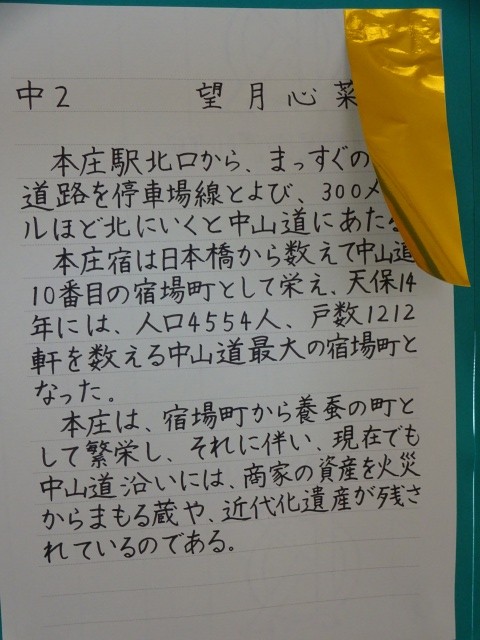 中2 望月心菜
本庄駅北口から、まっすぐの
道路を停車場線とよび、300メ
ルほど北にいくと中山道にあたる
本庄宿は日本橋から数えて中山道
10番目の宿場町として栄え、天保14
年には、人口4554人、戸数1212
軒を数える中山道最大の宿場町と
なった。
本庄は、宿場町から養蚕の町と
して繁栄し、それに伴い、現在でも
中山道沿いには、商家の資産を火災
からまもる蔵や、近代化遺産が残さ
れているのである。